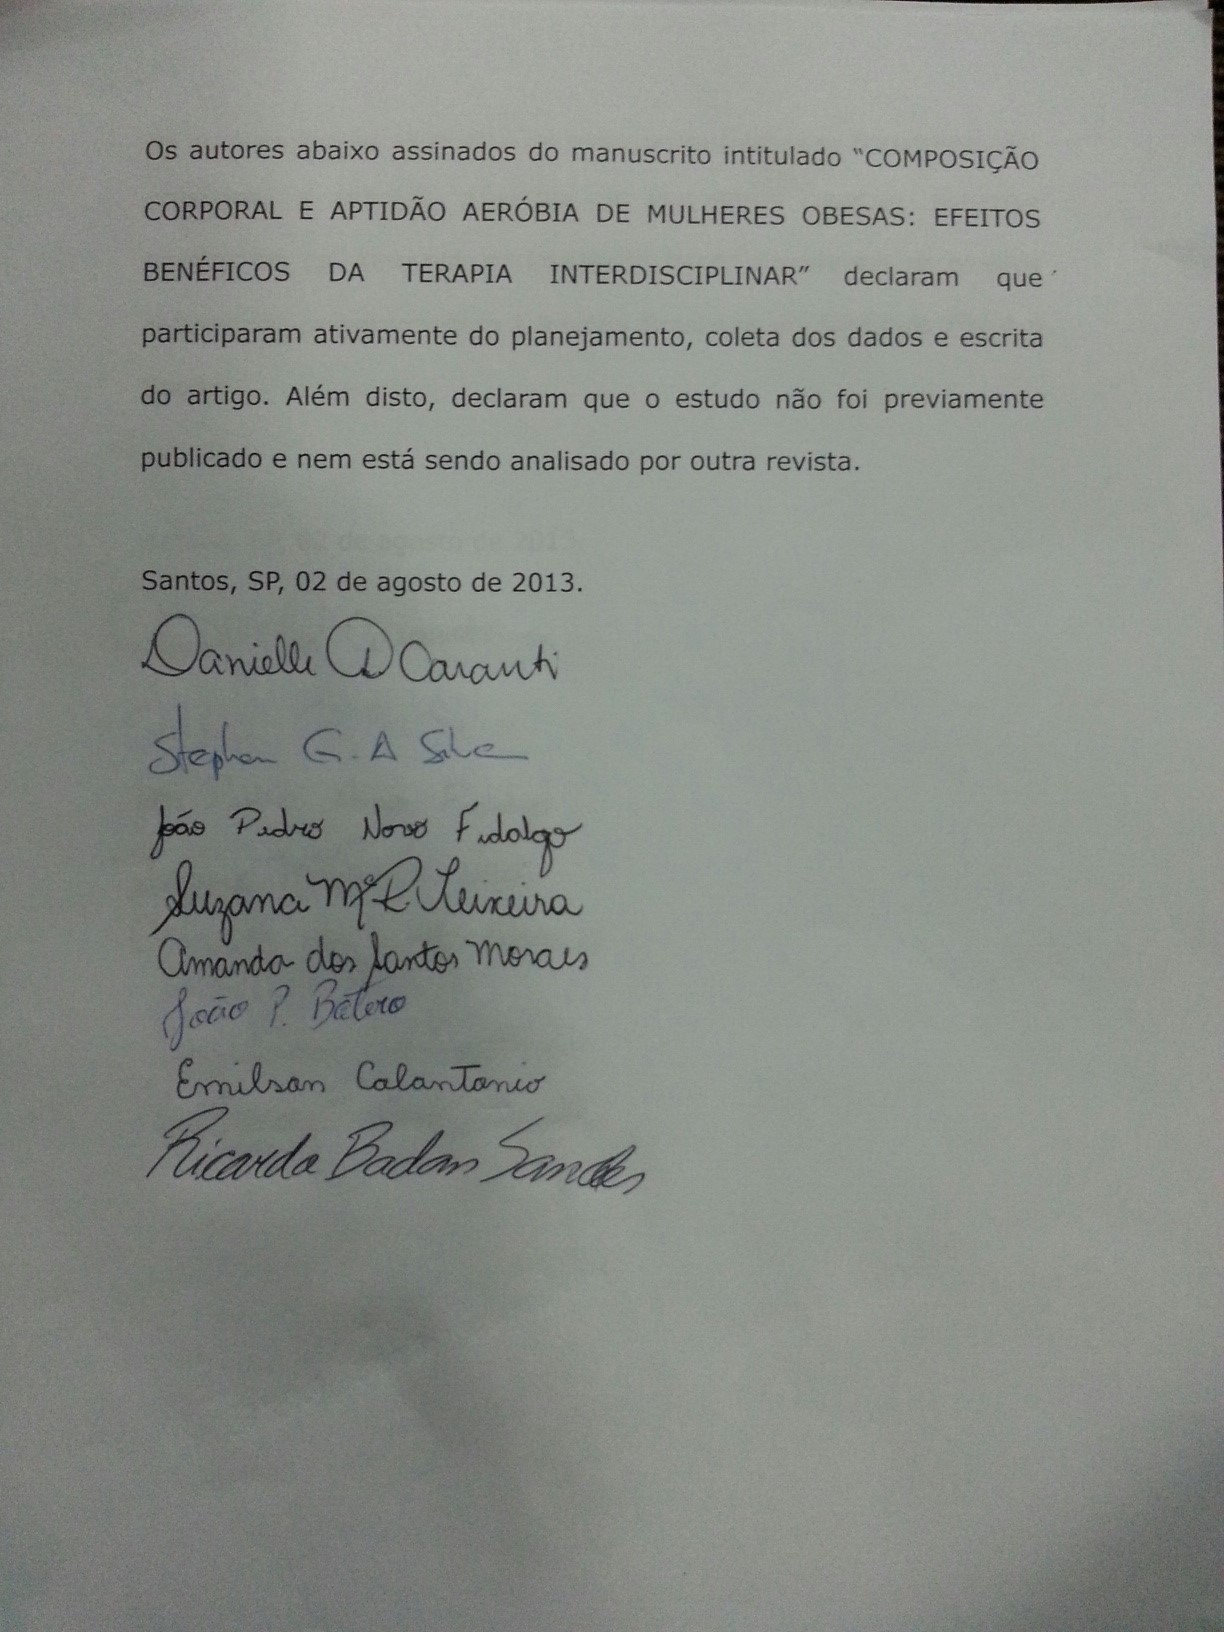 Os autores abaixo assinados do manuscrito intitulado “COMPOSIÇÃO
CORPORAL E APTIDÃO AERÓBIA DE MULHERES OBESAS: EFEITOS
BENÉFICOS DA TERAPIA INTERDISCIPLINAR” declaram que
participaram ativamente do planejamento, coleta dos dados e escrita
do artigo. Além disto, declaram que o estudo não foi previamente
publicado e nem está sendo analisado por outra revista.
Santos, SP, 02 de agosto de 2013.
Danielle D Caranti
Stephan G. A Silva
João Pedro Novo Fidalgo
Suzana Mª R Teixeira
Amanda dos Santos Moraes
João P. Botero
Emilson Colantonio
Ricardo Badan Sanches